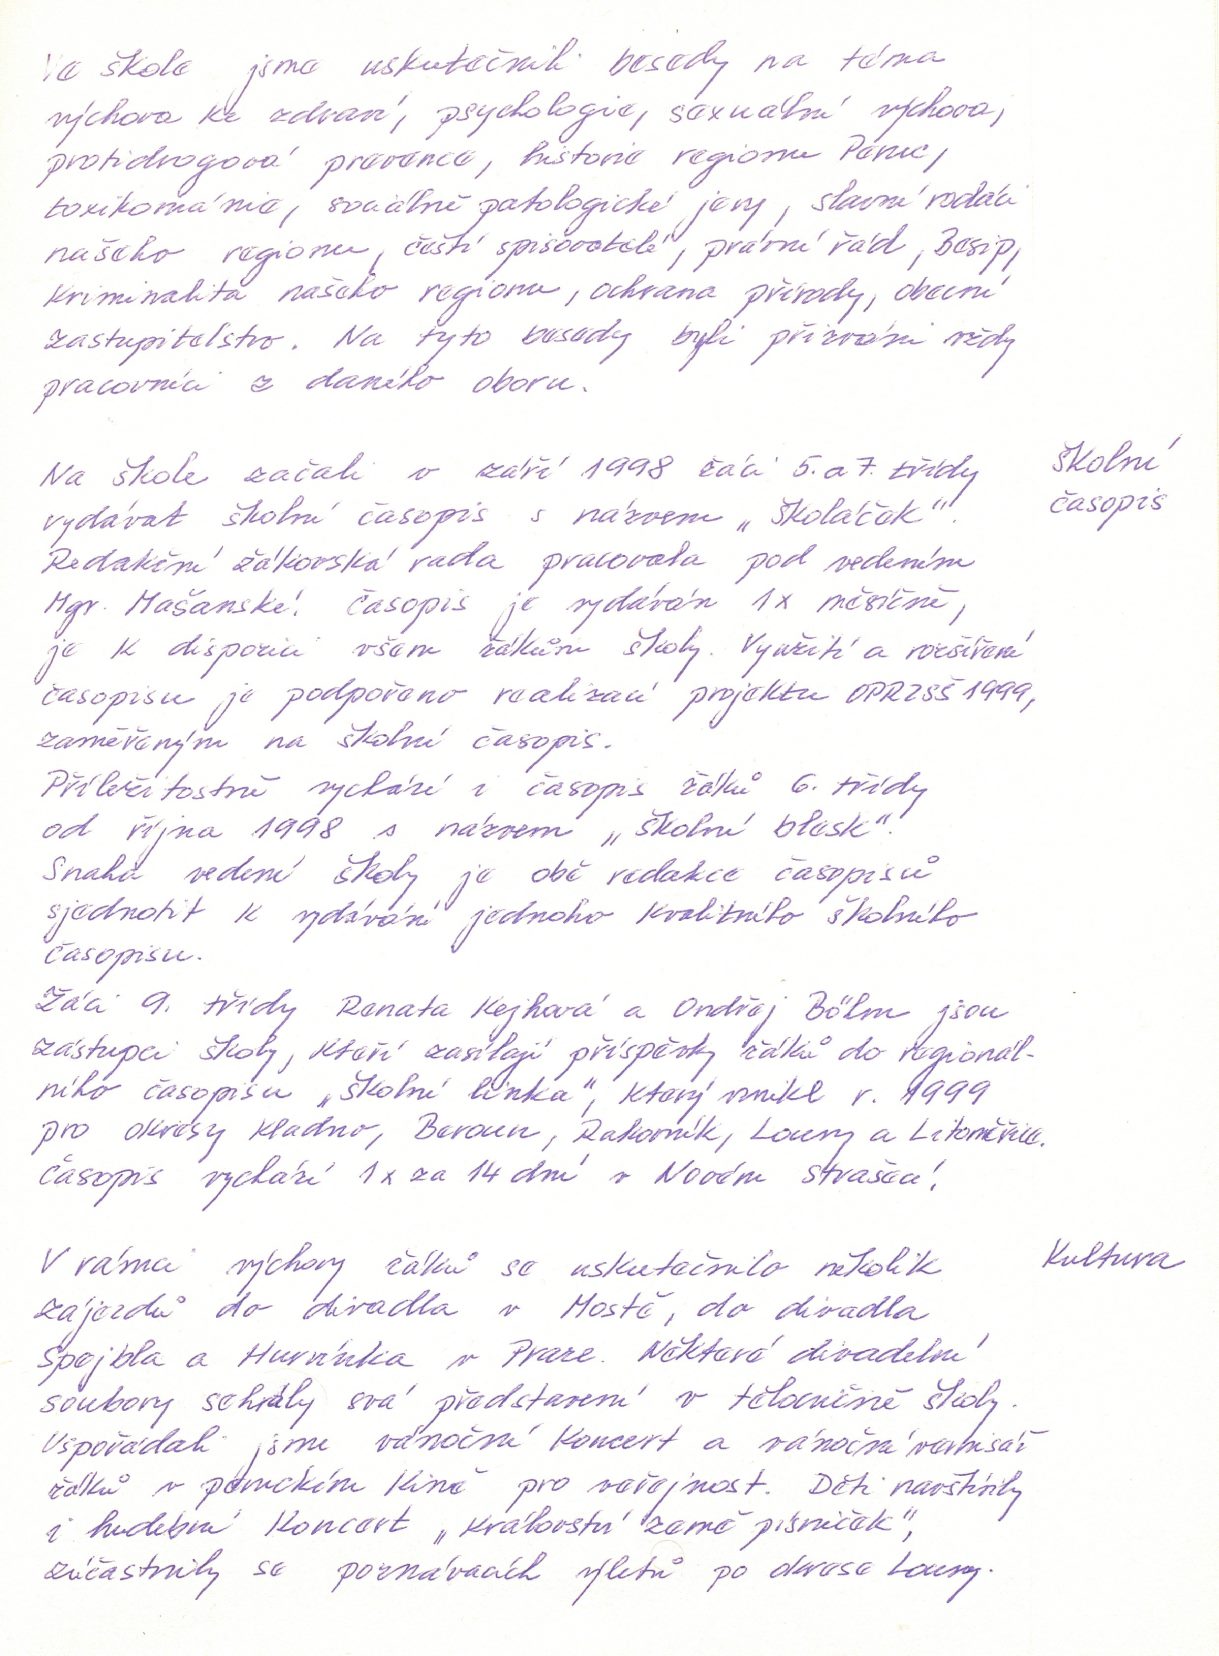 Ve škole jsme uskutečnili besedy na téma
výchova ke zdraví, psychologie, sexuální výchova,
protidrogová prevence, historie regionu Peruc,
toxikománie, sociálně patologické jevy, slavní rodáci
našeho regionu, čeští spisovatelé, právní řád, Besip,
kriminalita našeho regionu, ochrana přírody, obecní
zastupitelstvo. Na tyto besedy byli přizváni vždy
pracovníci z daného oboru.
Na škole začali v září 1998 žáci 5. a 7. třídy
vydávat školní časopis s názvem „Školáček".
Redakční žákovská rada pracovala pod vedením
Mgr. Mašanské. Časopis je vydáván 1x měsíčně,
je k dispozici všem žákům školy. Využití a rozšíření
časopisu je podpořeno realizací projektu OPRZSŠ 1999,
zaměřeným na školní časopis.
Příležitostně vychází i časopis žáků 6. třídy
od října 1998 s názvem „Školní blesk".
Snaha vedení školy je obě redakce časopisů
sjednotit k vydávání jednoho kvalitního školního
časopisu.
Žáci 9. třídy Renata Kejhová a Ondřej Böhm jsou
zástupci školy, kteří zasílají příspěvky žáků do regionál-
ního časopisu „Školní linka", který vznikl r. 1999
pro okresy Kladno, Beroun, Rakovník, Louny a Litoměřice.
Časopis vychází 1x za 14 dní v Novém Strašecí.
V rámci výchovy žáků se uskutečnilo několik
zájezdů do divadla v Mostě, do divadla
Spejbla a Hurvínka v Praze. Některé divadelní
soubory sehrály svá představení v tělocvičně školy.
Uspořádali jsme vánoční koncert a vánoční vernisáž
žáků v peruckém kině pro veřejnost. Děti navštívily
i hudební koncert „Království země písniček",
zúčastnily se poznávacích výletů po okrese Louny.
Školní
časopis
Kultura